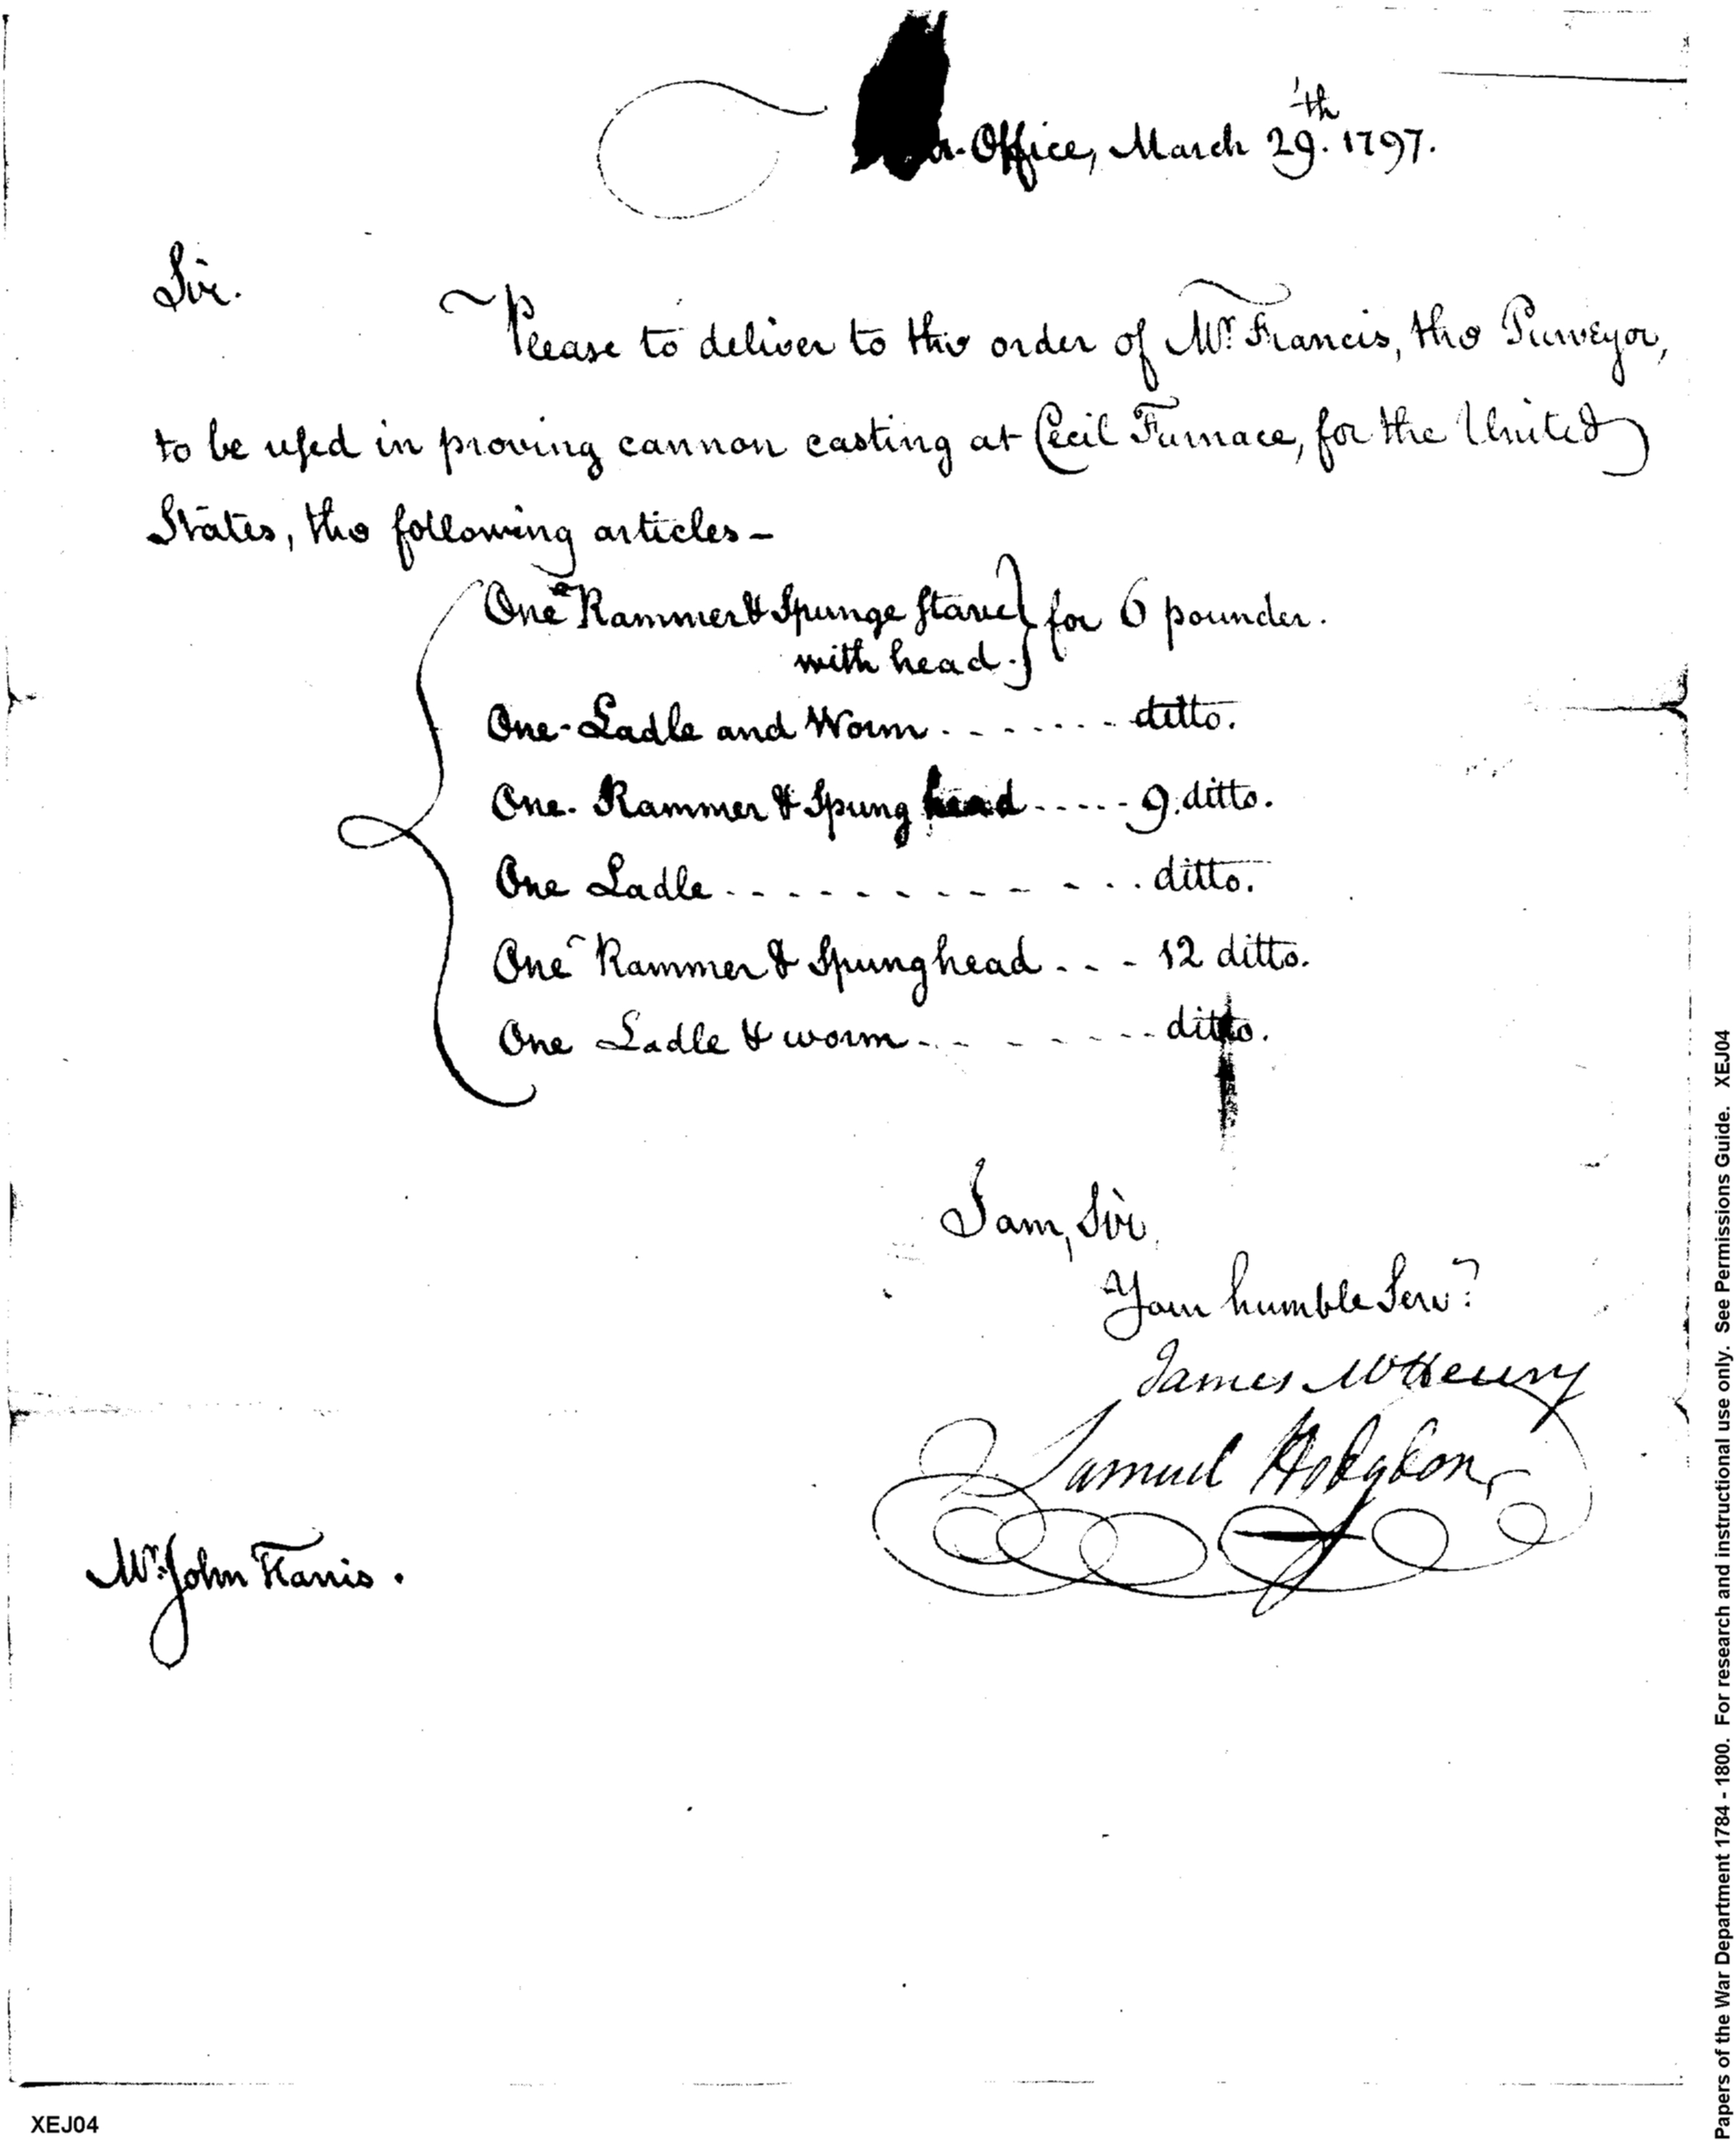 Office, March 29.th 1797.
Sir.
Please to deliver to the order of Mr. Francis, the Purveyor,
to be used in proving cannon casting at Cecil Furnace, for the United
States, the following articles-
One Rammer & Spunge stave } for 6 pounder.
with head.
One-Ladle and Worm . - - - - - - ditto.
One. Rammer & Spung head - - - - - 9. ditto.
One Ladle - - - - - - - - - - - ditto.
One Rammer & Spung head - - - 12 ditto.
One Ladle & worm - - - - - - - ditto.
I am, Sir,
Your humble Servt.
James McHenry
Samuel Hodgdon
Mr. John Harris.
XEJ04
Papers of the War Department 1784 - 1800. For research and instructional use only. See Permissions Guide. XEJ04